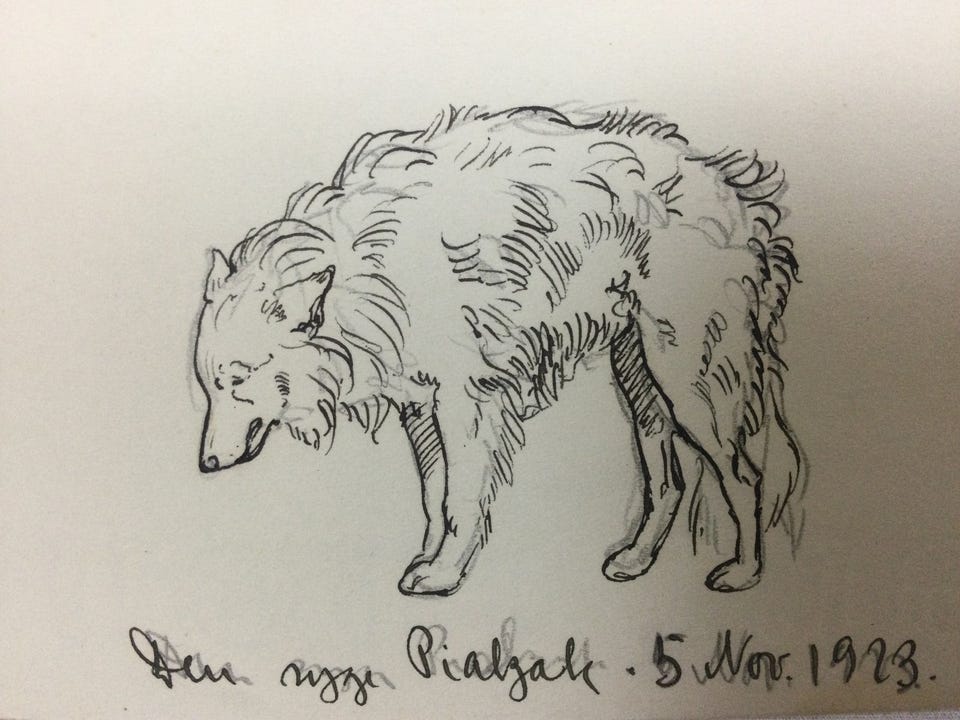 Den Pialzak. 5 Nov. 1923.